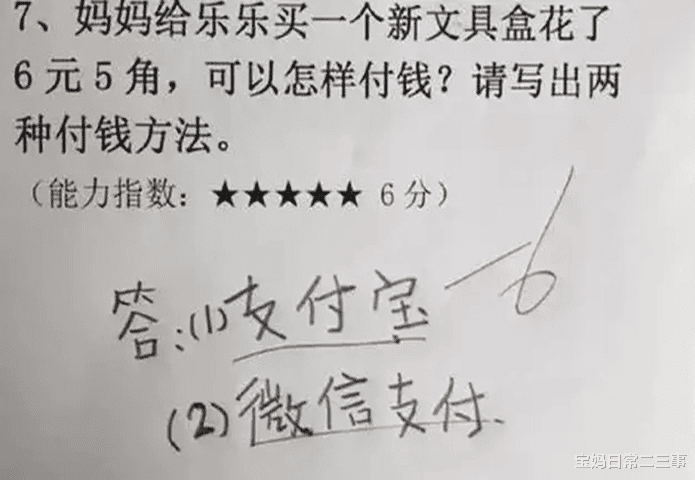 7、妈妈给乐乐买一个新文具盒花了
6元5角，可以怎样付钱？请写出两
种付钱方法。
（能力指数：★★★★★ 6分）
答：(1)支付宝 -6
(2)微信支付.
宝妈日常二三事